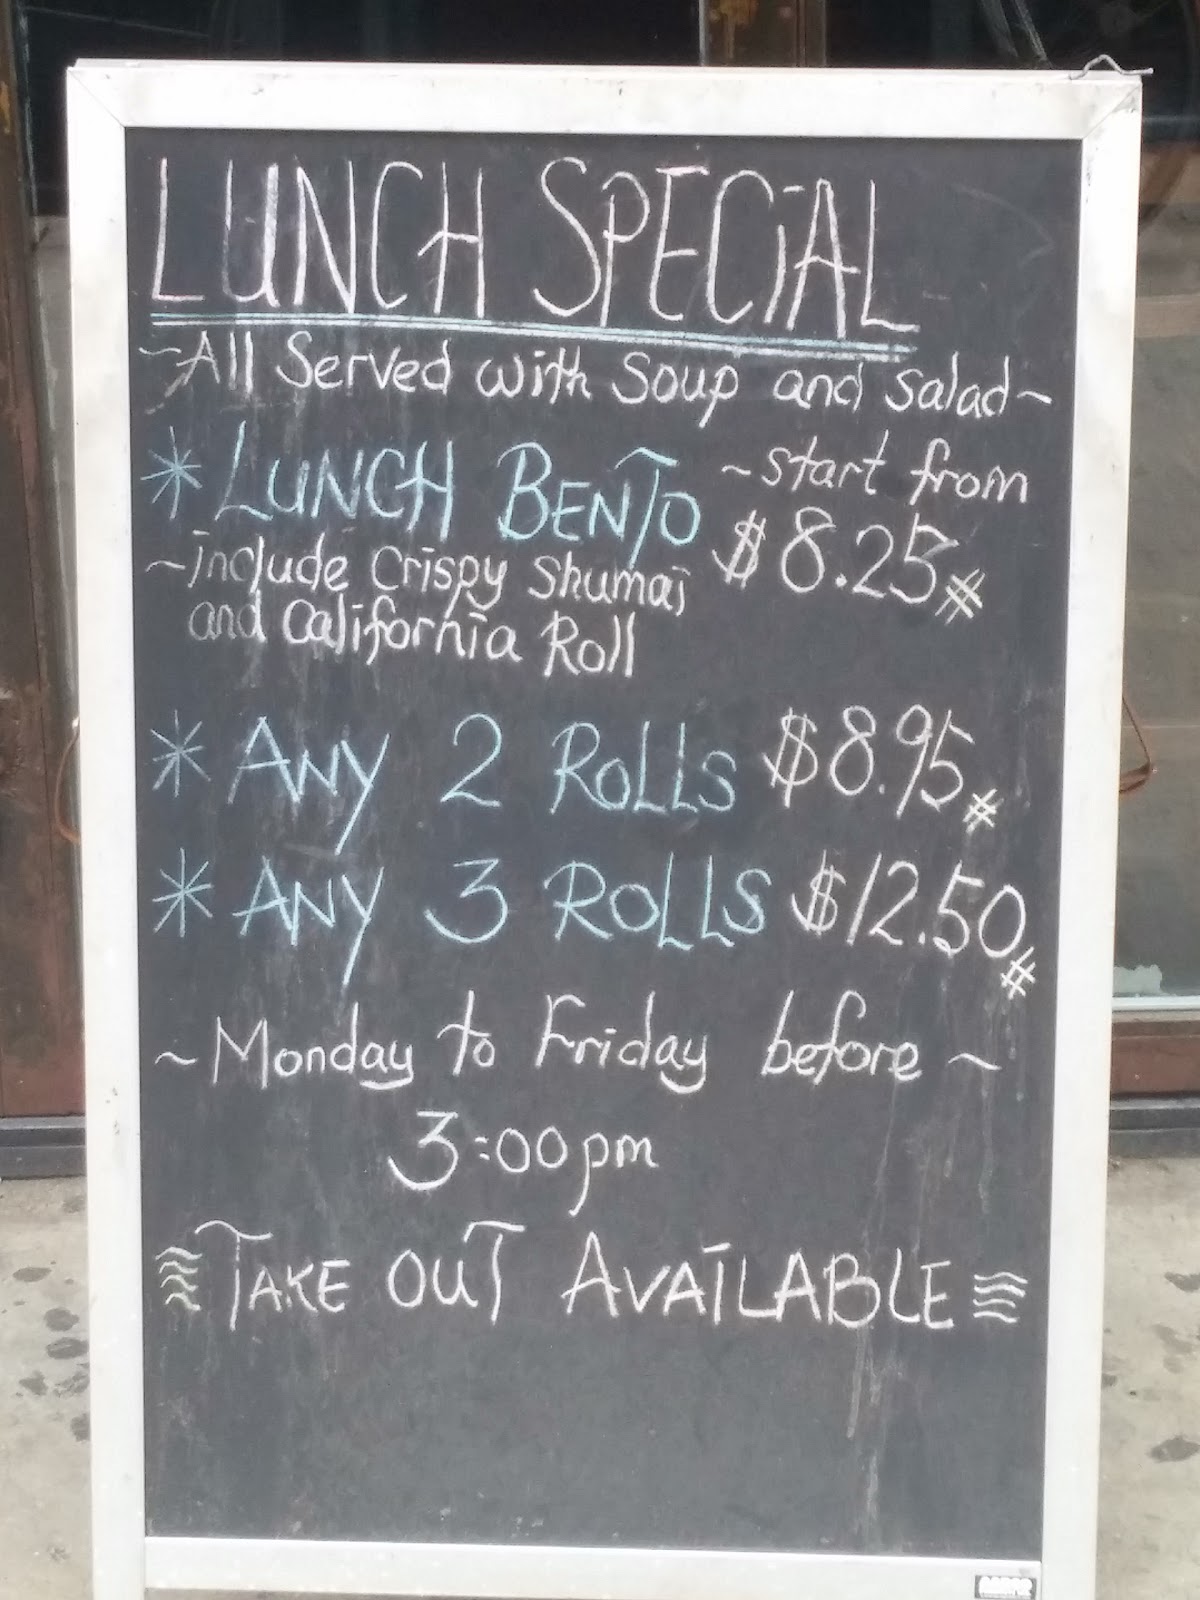 LUNCH SPECiAL
~All Served with Soup and Salad~
* LUNCH BENTO ~start from
$8.25#
~include Crispy Shumai
and California Roll
* ANY 2 ROLLS $8.95#
* ANY 3 ROLLS $12.50#
~Monday to Friday before~
3:00pm
TAKE OUT AVAILABLE